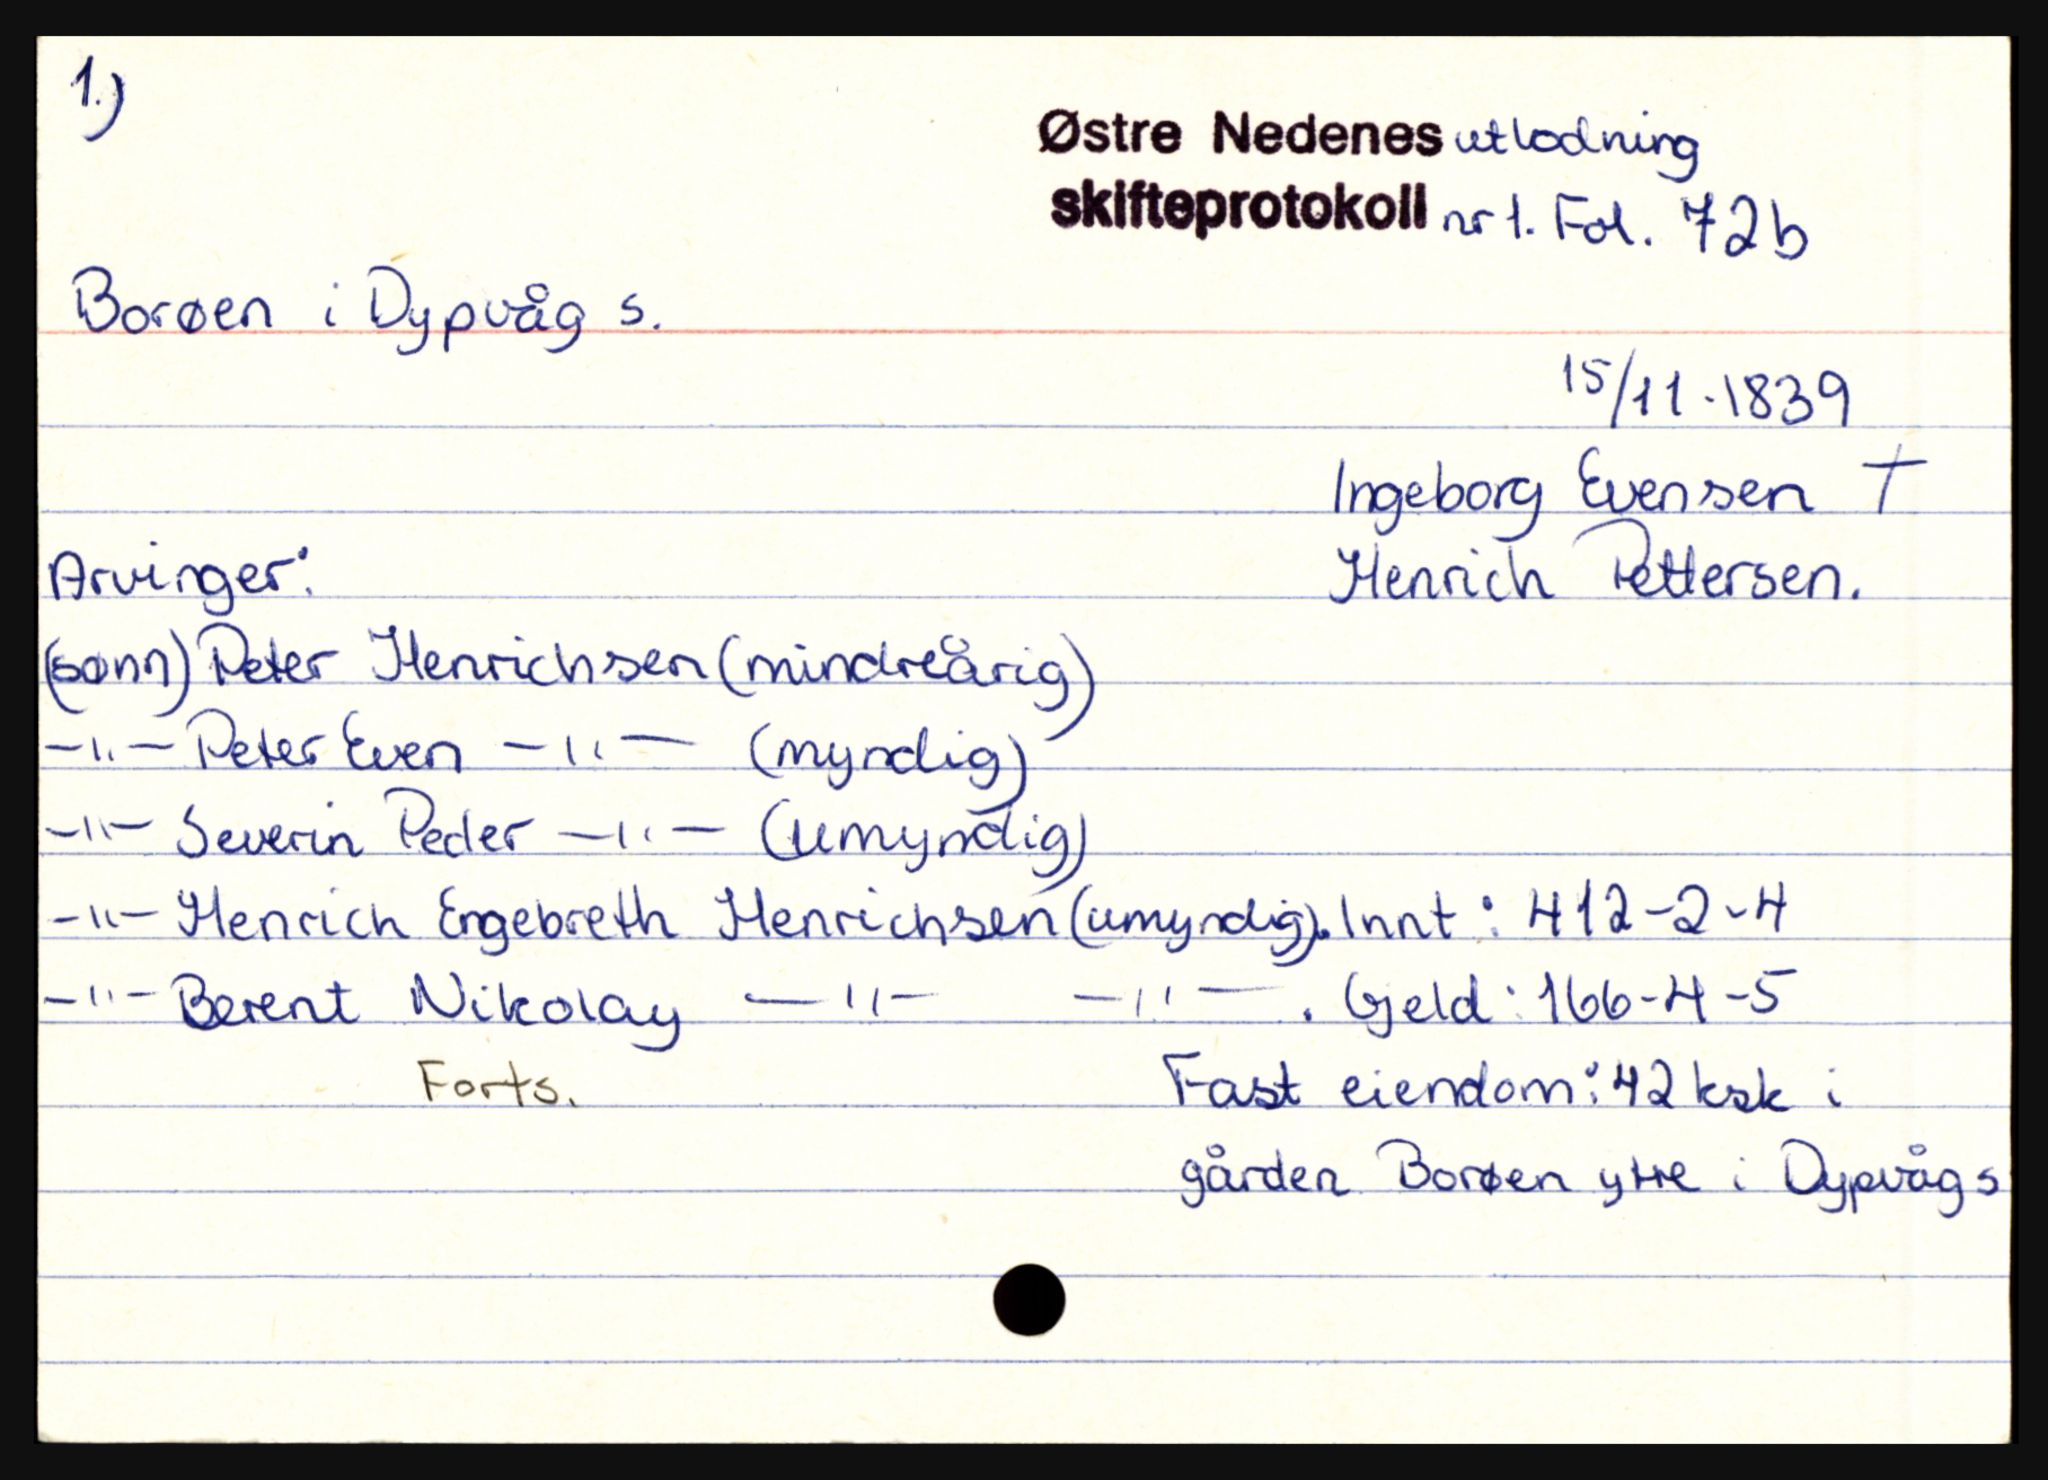 1.)
Østre Nedenes utlodning
skifteprotokoll nr 1. Fol. 72b
Borøen i Dypvåg s.
15/11-1839
Ingeborg Evensen †
Arvinger: Henrich Pettersen.
(sønn) Peter Henrichsen (mindreårig)
-"- Peter Even -"- (myndig)
-"- Severin Peder -"- (umyndig)
-"- Henrich Engebreth Henrichsen (umyndig). Innt: 412-2-4
-"- Berent Nikolay -"- -"-. Gjeld: 166-4-5
Forts. Fast eiendom: 42 ksk i
gården Borøen ytre i Dypvåg s